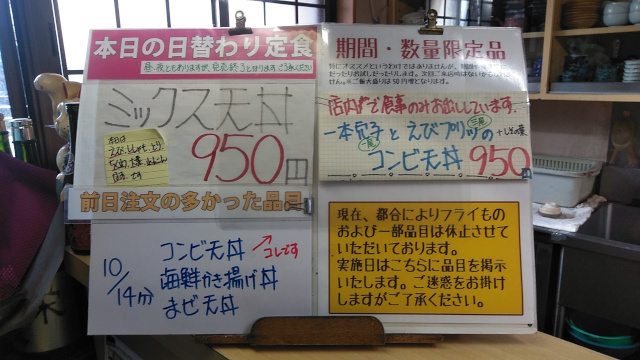 本日の日替わり定食
昼、夜ともありますが、
ミックス天丼
950円
本日は
えび、
です
前日注文の多かった品目
10/14分
コンビ天丼
コレです
海鮮かき揚げ丼
まぜ天丼
期間・数量限定品
特にオススメというわけではありませんが、
店内で食事のみお出ししています。
一本穴子とえびプリッの
一尾
三尾
コンビ天丼 950円
現在、都合によりフライもの
および一部品目は休止させて
いただいております。
実施日はこちらに品目を掲示
いたします。ご迷惑をお掛け
しますがご了承ください。